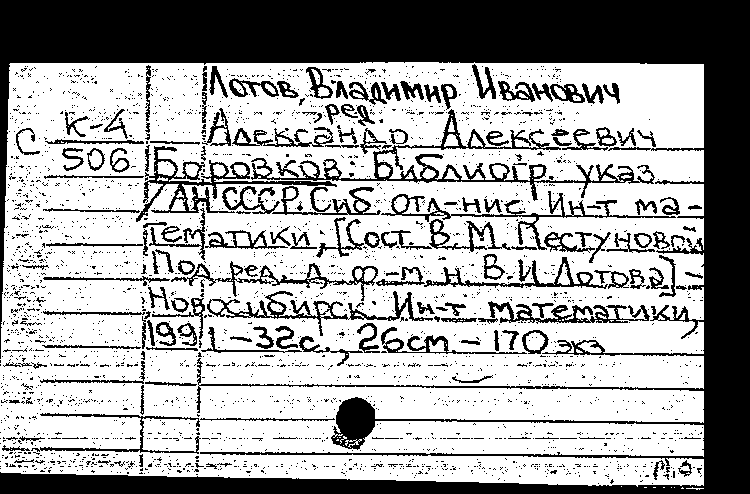 Лотов, Владимир Иванович
, ред.
К-4 Александр Алексеевич
С
506 Боровков: Библиогр. указ.
/АН СССР. Сиб. отд-ние, Ин-т ма-
тематики; [Сост. В. М. Пестуновой
Под ред. д. ф.-м. н. В. И. Лотова] –
Новосибирск: Ин-т математики,
1991 – 32с.; 26cm – 170 экз